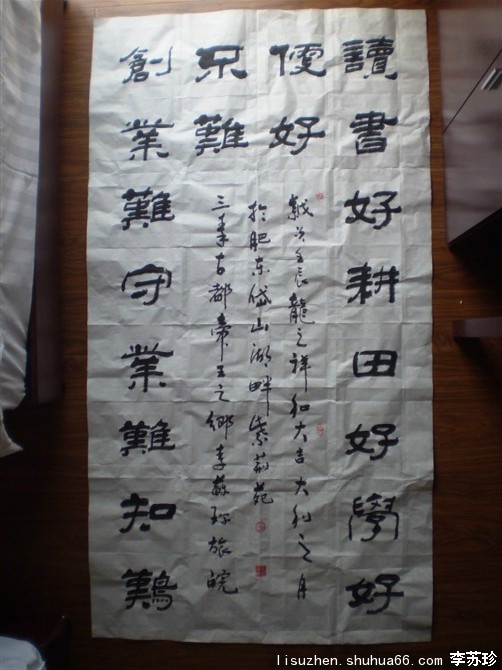 讀書好耕田好學好
便好
創業難守業難知難
不難
壬辰龍之祥和大吉大利之月
於肥東岱山湖畔紫荊苑
三秦古都帝王之鄉李蘇珍旅皖
lisuzhen.shuhua66.com 李苏珍